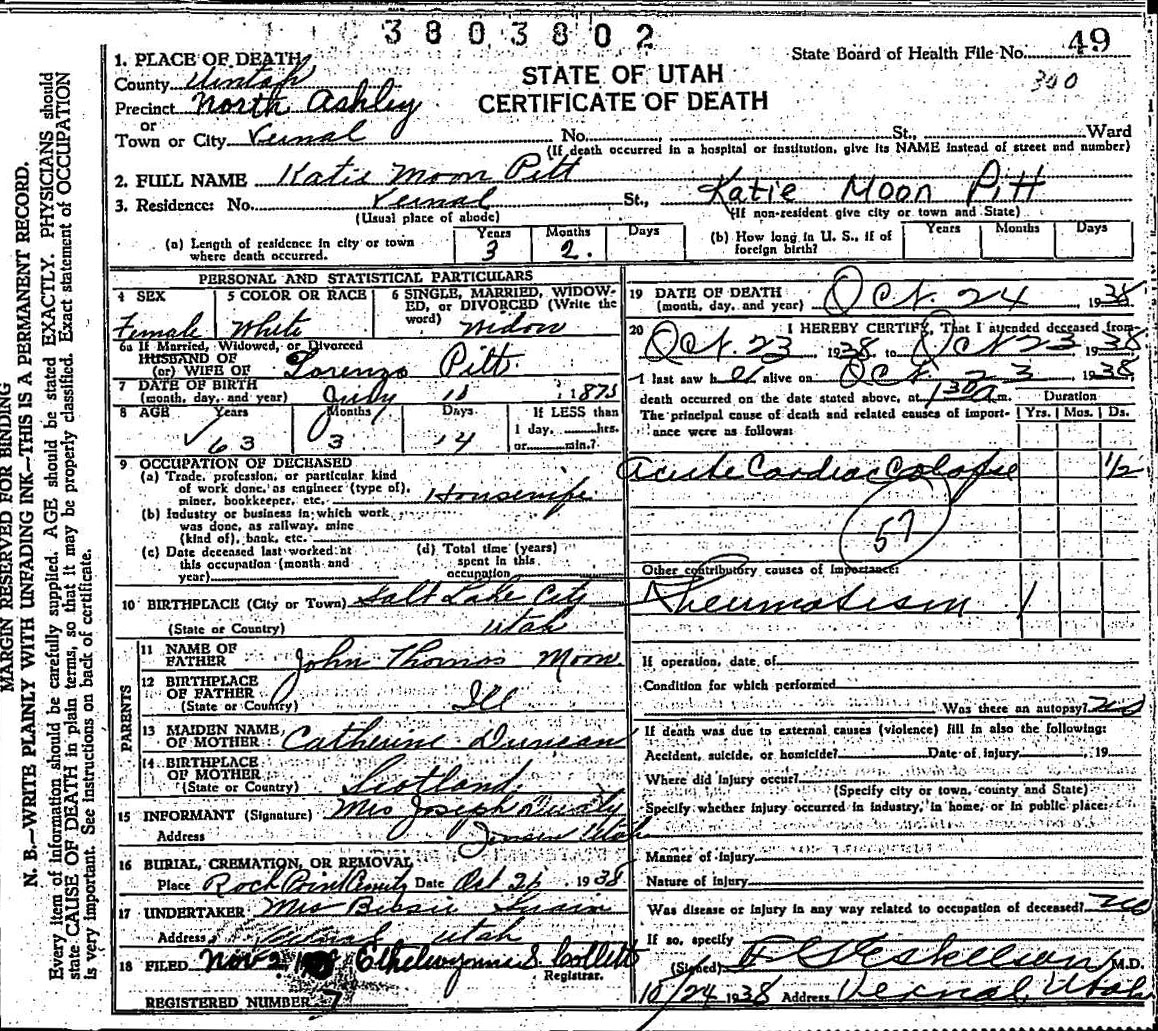 3803802
State Board of Health File No. 49
300
STATE OF UTAH
CERTIFICATE OF DEATH
1. PLACE OF DEATH
County Uintah
Precinct North Ashley
or
Town or City Vernal No. St., Ward
(If death occurred in a hospital or institution, give its NAME instead of street and number)
2. FULL NAME Katie Moon Pitt
3. Residence: No. Vernal St., Katie Moon Pitt
(Usual place of abode) (If non-resident give city or town and State)
(a) Length of residence in city or town where death occurred. Years 3 Months 2. Days
(b) How long in U. S., if of foreign birth? Years Months Days
PERSONAL AND STATISTICAL PARTICULARS
4 SEX Female
5 COLOR OR RACE White
6 SINGLE, MARRIED, WIDOW-
ED, or DIVORCED (Write the
word) Widow
6a If Married, Widowed, or Divorced
HUSBAND OF
(or) WIFE OF Lorenzo Pitt
7 DATE OF BIRTH
(month, day, and year) July 10, 1875
8 AGE Years 63 Months 3 Days 14
If LESS than
1 day, hrs.
or min.?
9 OCCUPATION OF DECEASED
(a) Trade, profession, or particular kind
of work done, as engineer (type of),
miner, bookkeeper, etc. Housewife
(b) Industry or business in which work
was done, as railway, mine
(kind of), bank, etc.
(c) Date deceased last worked at
this occupation (month and
year)
(d) Total time (years)
spent in this
occupation
10 BIRTHPLACE (City or Town) Salt Lake City
(State or Country) Utah
PARENTS
11 NAME OF
FATHER John Thomas Moon
12 BIRTHPLACE
OF FATHER
(State or Country) Ill
13 MAIDEN NAME
OF MOTHER Catherine Duncan
14 BIRTHPLACE
OF MOTHER
(State or Country) Scotland
15 INFORMANT (Signature) Mrs Joseph
Address Jensen Utah
16 BURIAL, CREMATION, OR REMOVAL
Place Rock Point Date Oct 26, 1938
17 UNDERTAKER Mrs Bessie
Address Vernal Utah
18 FILED Nov 2 Ethelwynne S. Collett
Registrar.
REGISTERED NUMBER 7
19 DATE OF DEATH
(month, day, and year) Oct. 24, 1938
20 I HEREBY CERTIFY, That I attended deceased from
Oct. 23 1938 to Oct 23 1938
I last saw her alive on Oct. 23 1938,
death occurred on the date stated above, at 130 a.m.
Duration
The principal cause of death and related causes of import-
ance were as follows: Yrs. Mos. Ds.
Acute Cardiac Colapse 1/2
57
Other contributory causes of importance:
Rheumatism 1
If operation, date of
Condition for which performed
Was there an autopsy? no
If death was due to external causes (violence) fill in also the following:
Accident, suicide, or homicide? Date of injury , 19
Where did injury occur?
(Specify city or town, county and State)
Specify whether injury occurred in industry, in home, or in public place:
Manner of injury
Nature of injury
Was disease or injury in any way related to occupation of deceased? no
If so, specify
(Signed) Eskelson M.D.
10/24 1938 Address Vernal, Utah
MARGIN RESERVED FOR BINDING
N. B.—WRITE PLAINLY WITH UNFADING INK—THIS IS A PERMANENT RECORD.
Every item of information should be carefully supplied. AGE should be stated EXACTLY. PHYSICIANS should
state CAUSE OF DEATH in plain terms, so that it may be properly classified. Exact statement of OCCUPATION
is very important. See instructions on back of certificate.